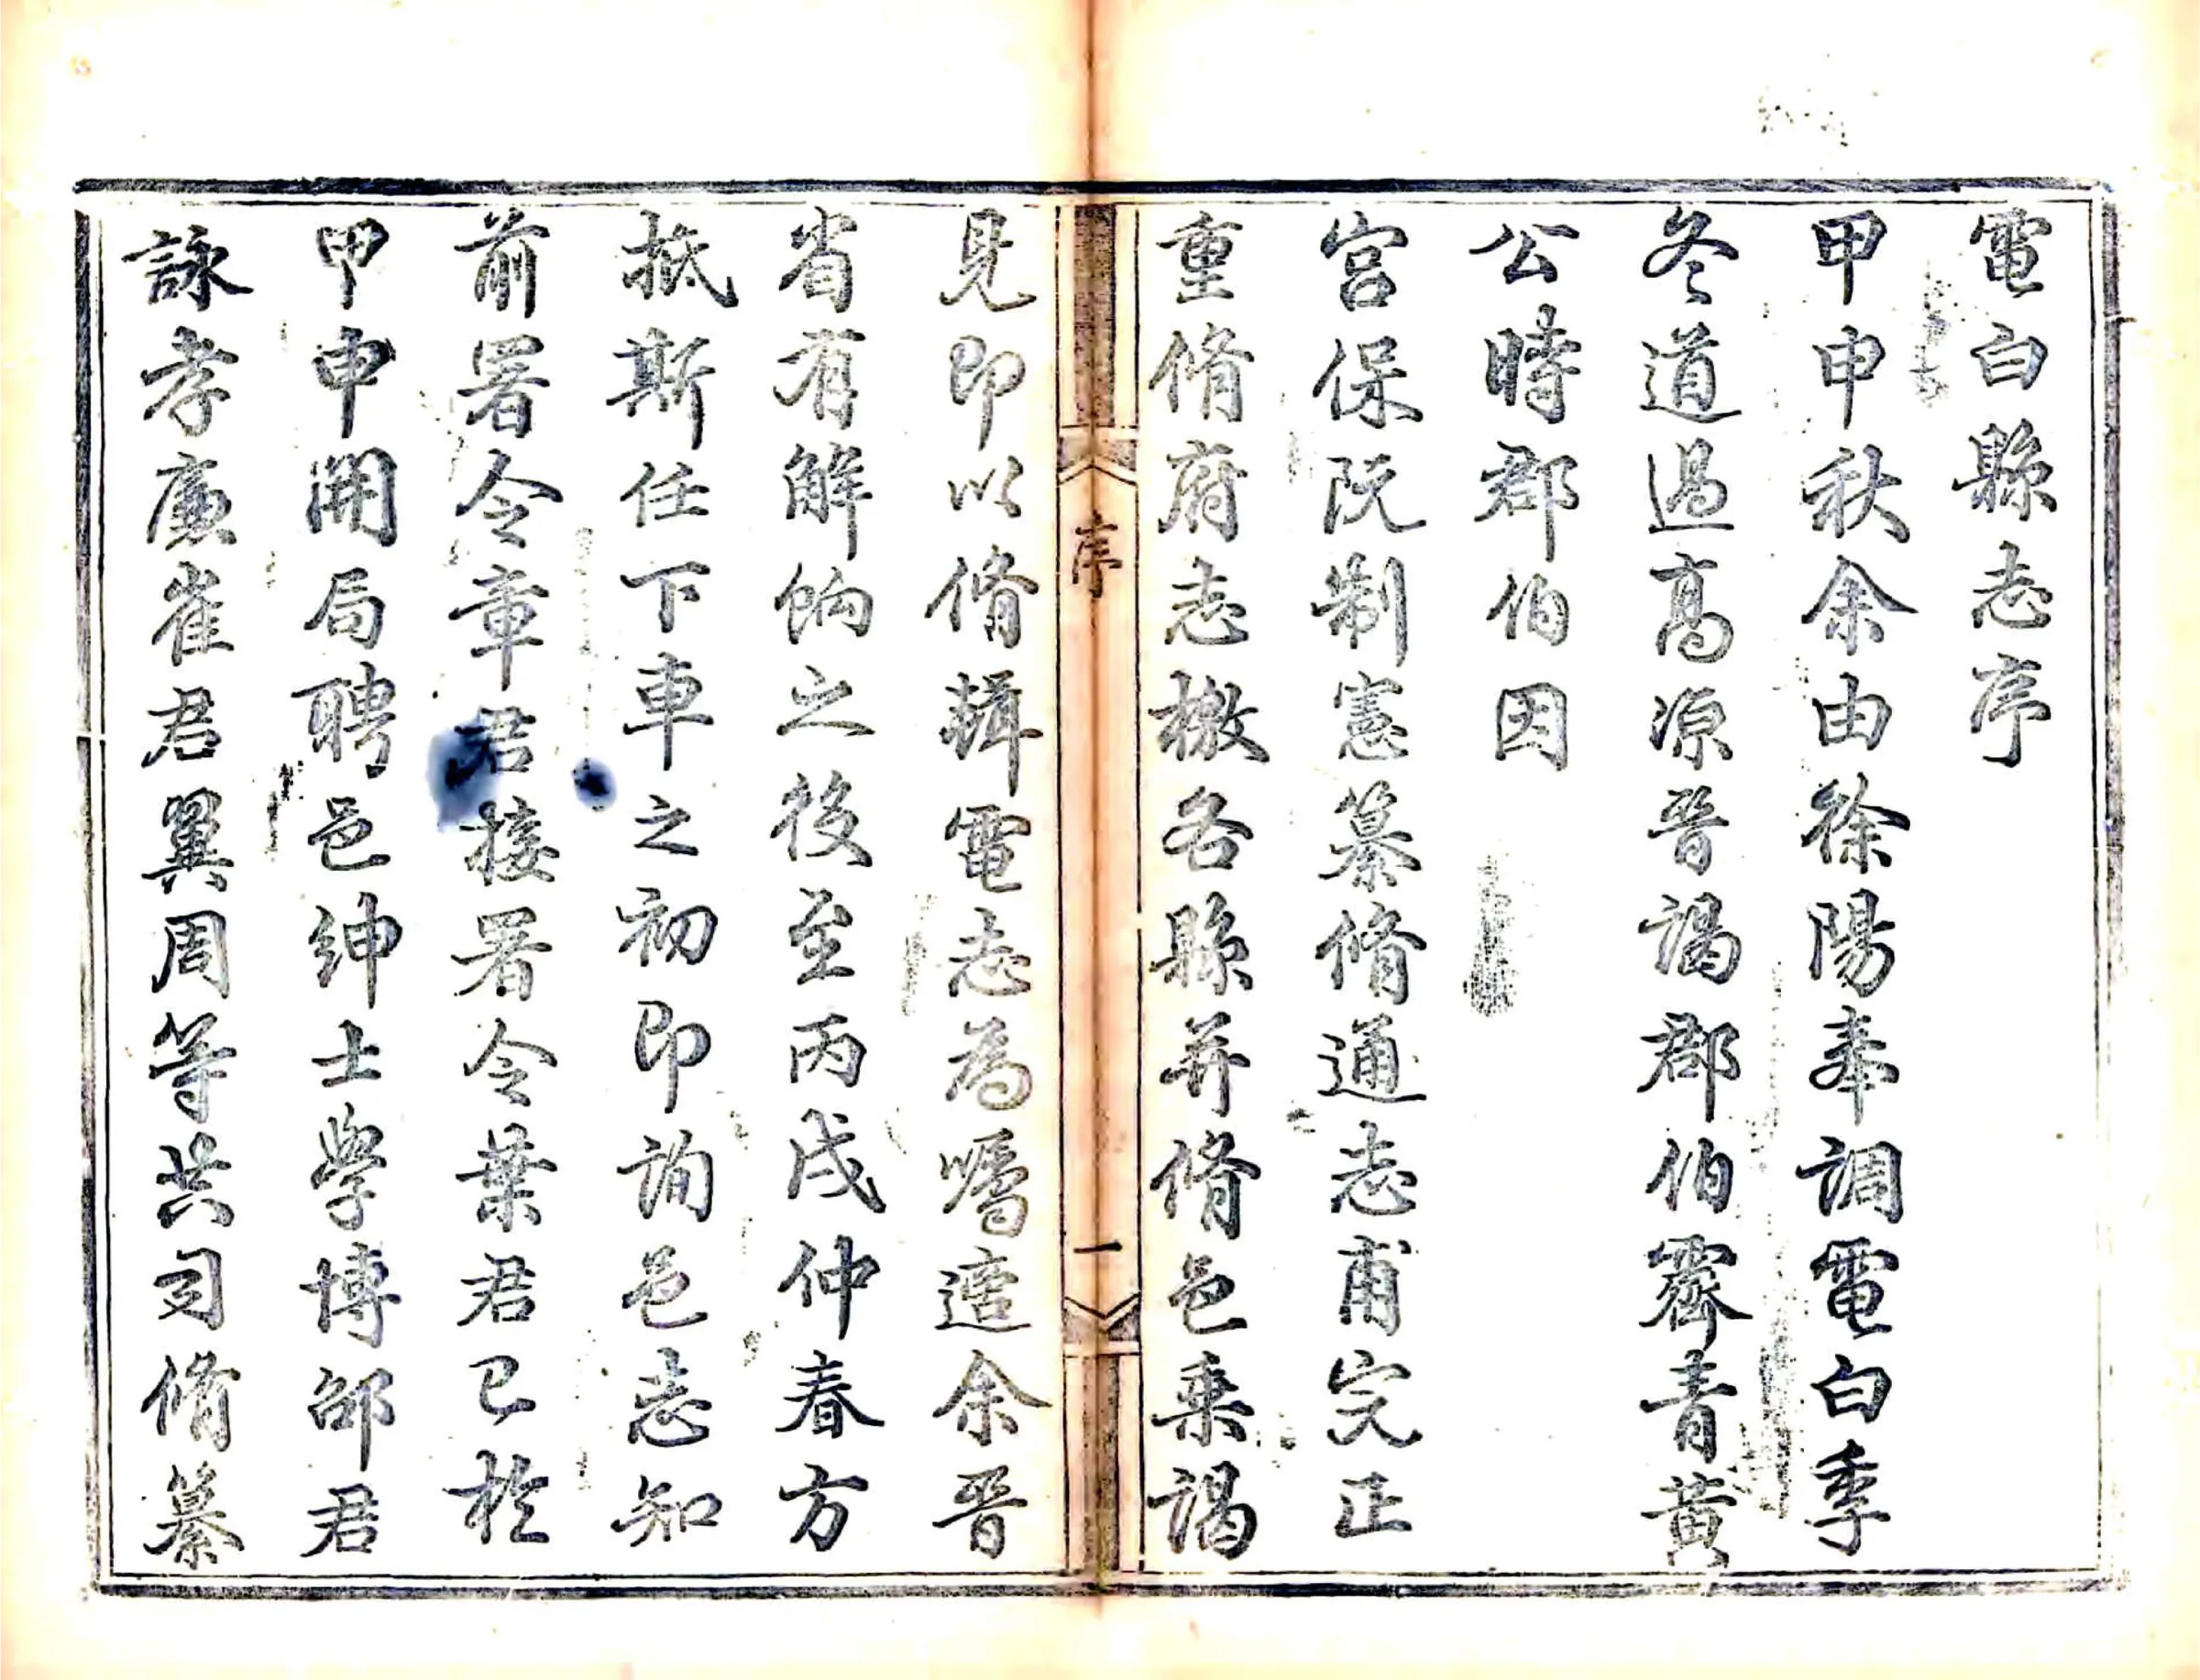 電白縣志序
甲申秋余由徐陽奉調電白季
冬道過高源晉謁郡伯霽青黃
公時郡伯因
宮保阮制憲纂脩通志甫完正
重脩府志檄各縣并脩邑乗謁
序
一
見即以脩輯電志為囑適余晉
省有解餉之役至丙戌仲春方
抵斯任下車之初即詢邑志知
前署令章君接署令葉君已於
甲申開局聘邑紳士學博邵君
詠孝廉崔君翼周等共司脩纂